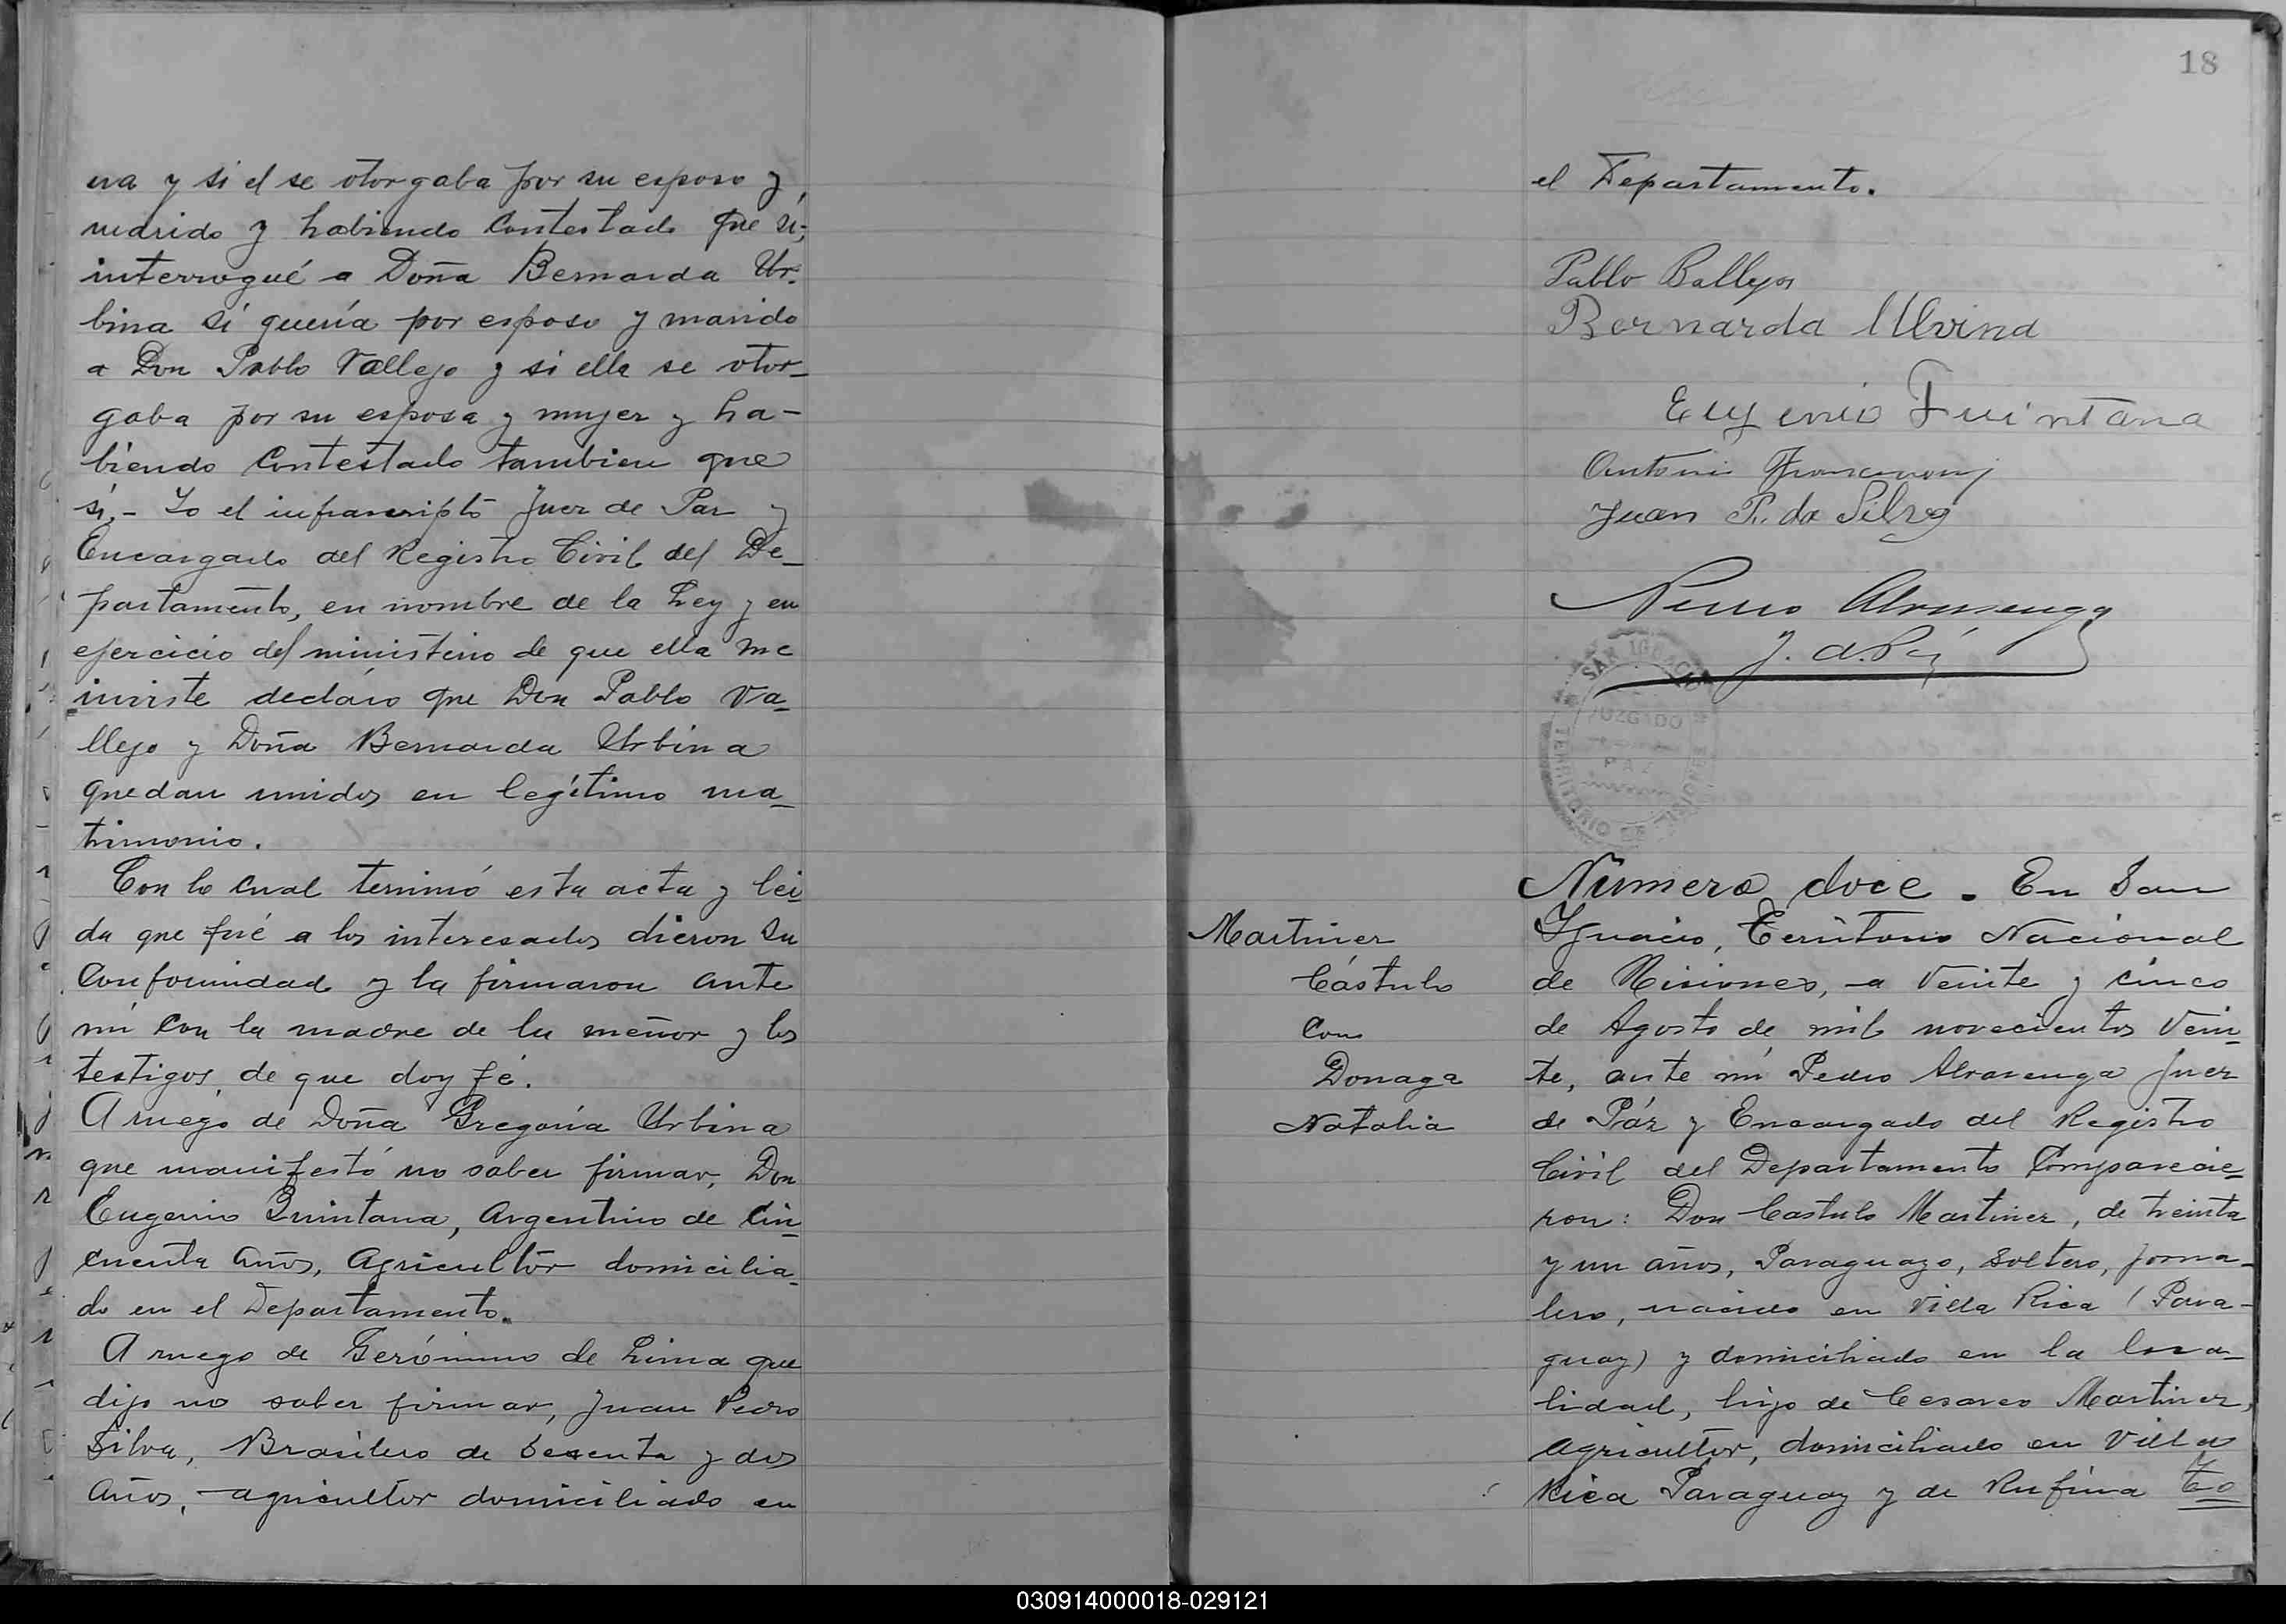 una y si el se otorgaba por su esposo y
marido y habiendo contestado que si;
interrogué a Doña Bernarda Ur-
bina si quería por esposo y marido
a Don Pablo Vallejo y si ella se otor-
gaba por su esposa y mujer y ha-
biendo contestado tambien que
si.- Yo el infrascripto Juez de Paz y
Encargado del Registro Civil del De-
partamento, en nombre de la Ley y en
ejercicio del ministerio de que ella me
inviste declaro que Don Pablo Va-
llejo y Doña Bernarda Urbina
quedan unidos en legítimo ma-
trimonio.
Con lo cual terminó esta acta y lei-
da que fué a los interesados dieron su
conformidad y la firmaron ante
mi con la madre de la menor y los
testigos, de que doy fé.
A ruego de Doña Gregoria Urbina
que manifestó no saber firmar, Don
Eugenio Quintana, Argentino de cin-
cuenta años, agricultor domicilia-
do en el Departamento.
A ruego de Gerónimo de Lima que
dijo no saber firmar, Juan Pedro
Silva, Brasilero de sesenta y dos
años, agricultor domiciliado en
18
el Departamento.
Pablo Ballejos
Bernarda Ulvina
Eugenio Quintana
Antonio
Juan P. da Silva
Pedro Alvarenga
J. de Paz
SAN IGNACIO
JUZGADO
PAZ
TERRITORIO DE MISIONES
Martinez
Cástulo
con
Donaga
Natalia
Número doce. En San
Ignacio, Territorio Nacional
de Misiones, a veinte y cinco
de Agosto de mil novecientos vein-
te, ante mi Pedro Alvarenga Juez
de Páz y Encargado del Registro
Civil del Departamento Comparecie-
ron: Don Castulo Martinez, de treinta
y un años, Paraguayo, soltero, jorna-
lero, nacido en Villa Rica (Para-
guay) y domiciliado en la loca-
lidad, hijo de Cesareo Martinez,
agricultor, domiciliado en Villa
Rica Paraguay y de Rufina To
030914000018-029121